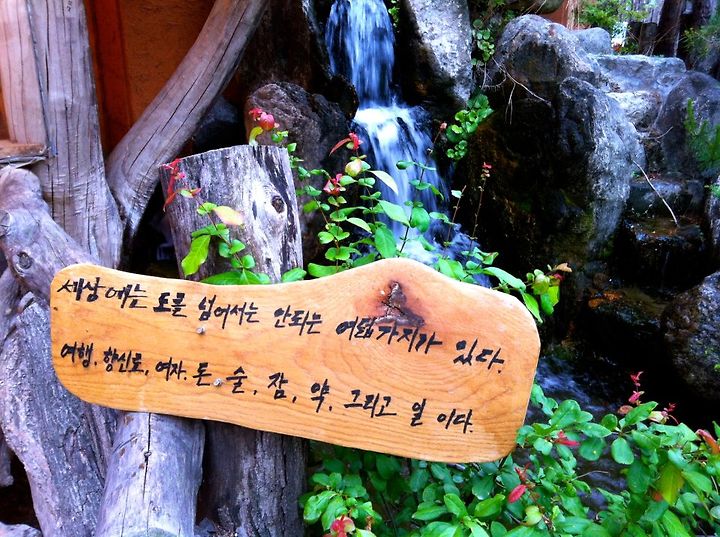 세상에는 도를 넘어서는 안되는 여덟가지가 있다.
여행, 향신료, 여자, 돈, 술, 잠, 약, 그리고 일 이다.